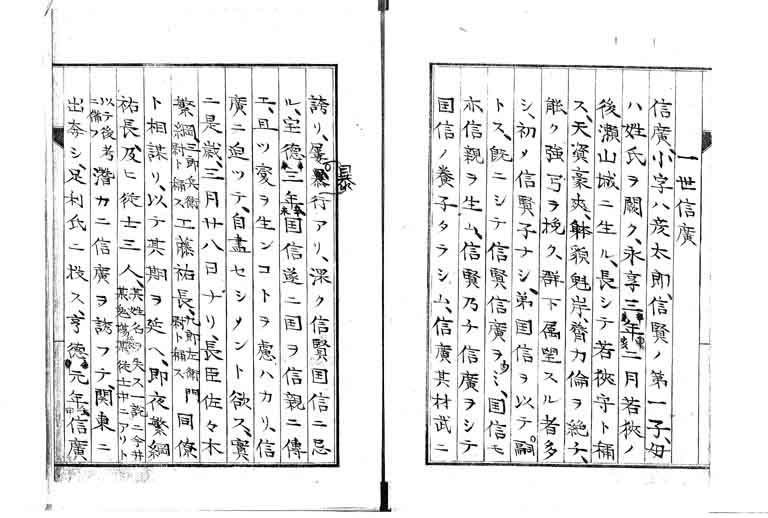 一世信廣
信廣、小字ハ彦太郎、信賢ノ第一子、母
ハ姓氏ヲ闕ク、永享三年二月若狹ノ
後瀬山城ニ生ル、長シテ若狹守ト稱
ス、天資豪爽、躰貌魁岸、膂力倫ヲ絶チ、
能ク強弓ヲ挽ク、群下属望スル者多
シ、初メ信賢子ナシ、弟国信ヲ以テ嗣
トス、既ニシテ信賢信廣ヲウミ、国信モ
亦信親ヲ生ム、信賢乃チ信廣ヲシテ
国信ノ養子タラシム、信廣其材武ニ
誇リ、屡暴行アリ、深ク信賢国信ニ忌
暴
ル、宝德三年国信遂ニ国ヲ信親ニ傳
エ、且ツ変ヲ生ンコトヲ慮ハカリ、信
廣ニ迫ツテ、自盡セシメント欲ス、實
ニ是歳、三月廿八日ナリ、長臣佐々木
繁綱三郎兵衛尉ト稱ス工藤祐長、九郎左衛門尉ト稱ス同僚
ト相謀リ、以テ其期ヲ延ヘ、即夜繁綱
祐長、及ヒ従士三人、其姓名ヲ失ス一説ニ今井某鬼庭某徒士中ニアリト
以テ後考ニ備フ潜カニ信廣ヲ誘フテ、関東ニ
出奔シ、足利氏ニ投ス、享德元年信廣